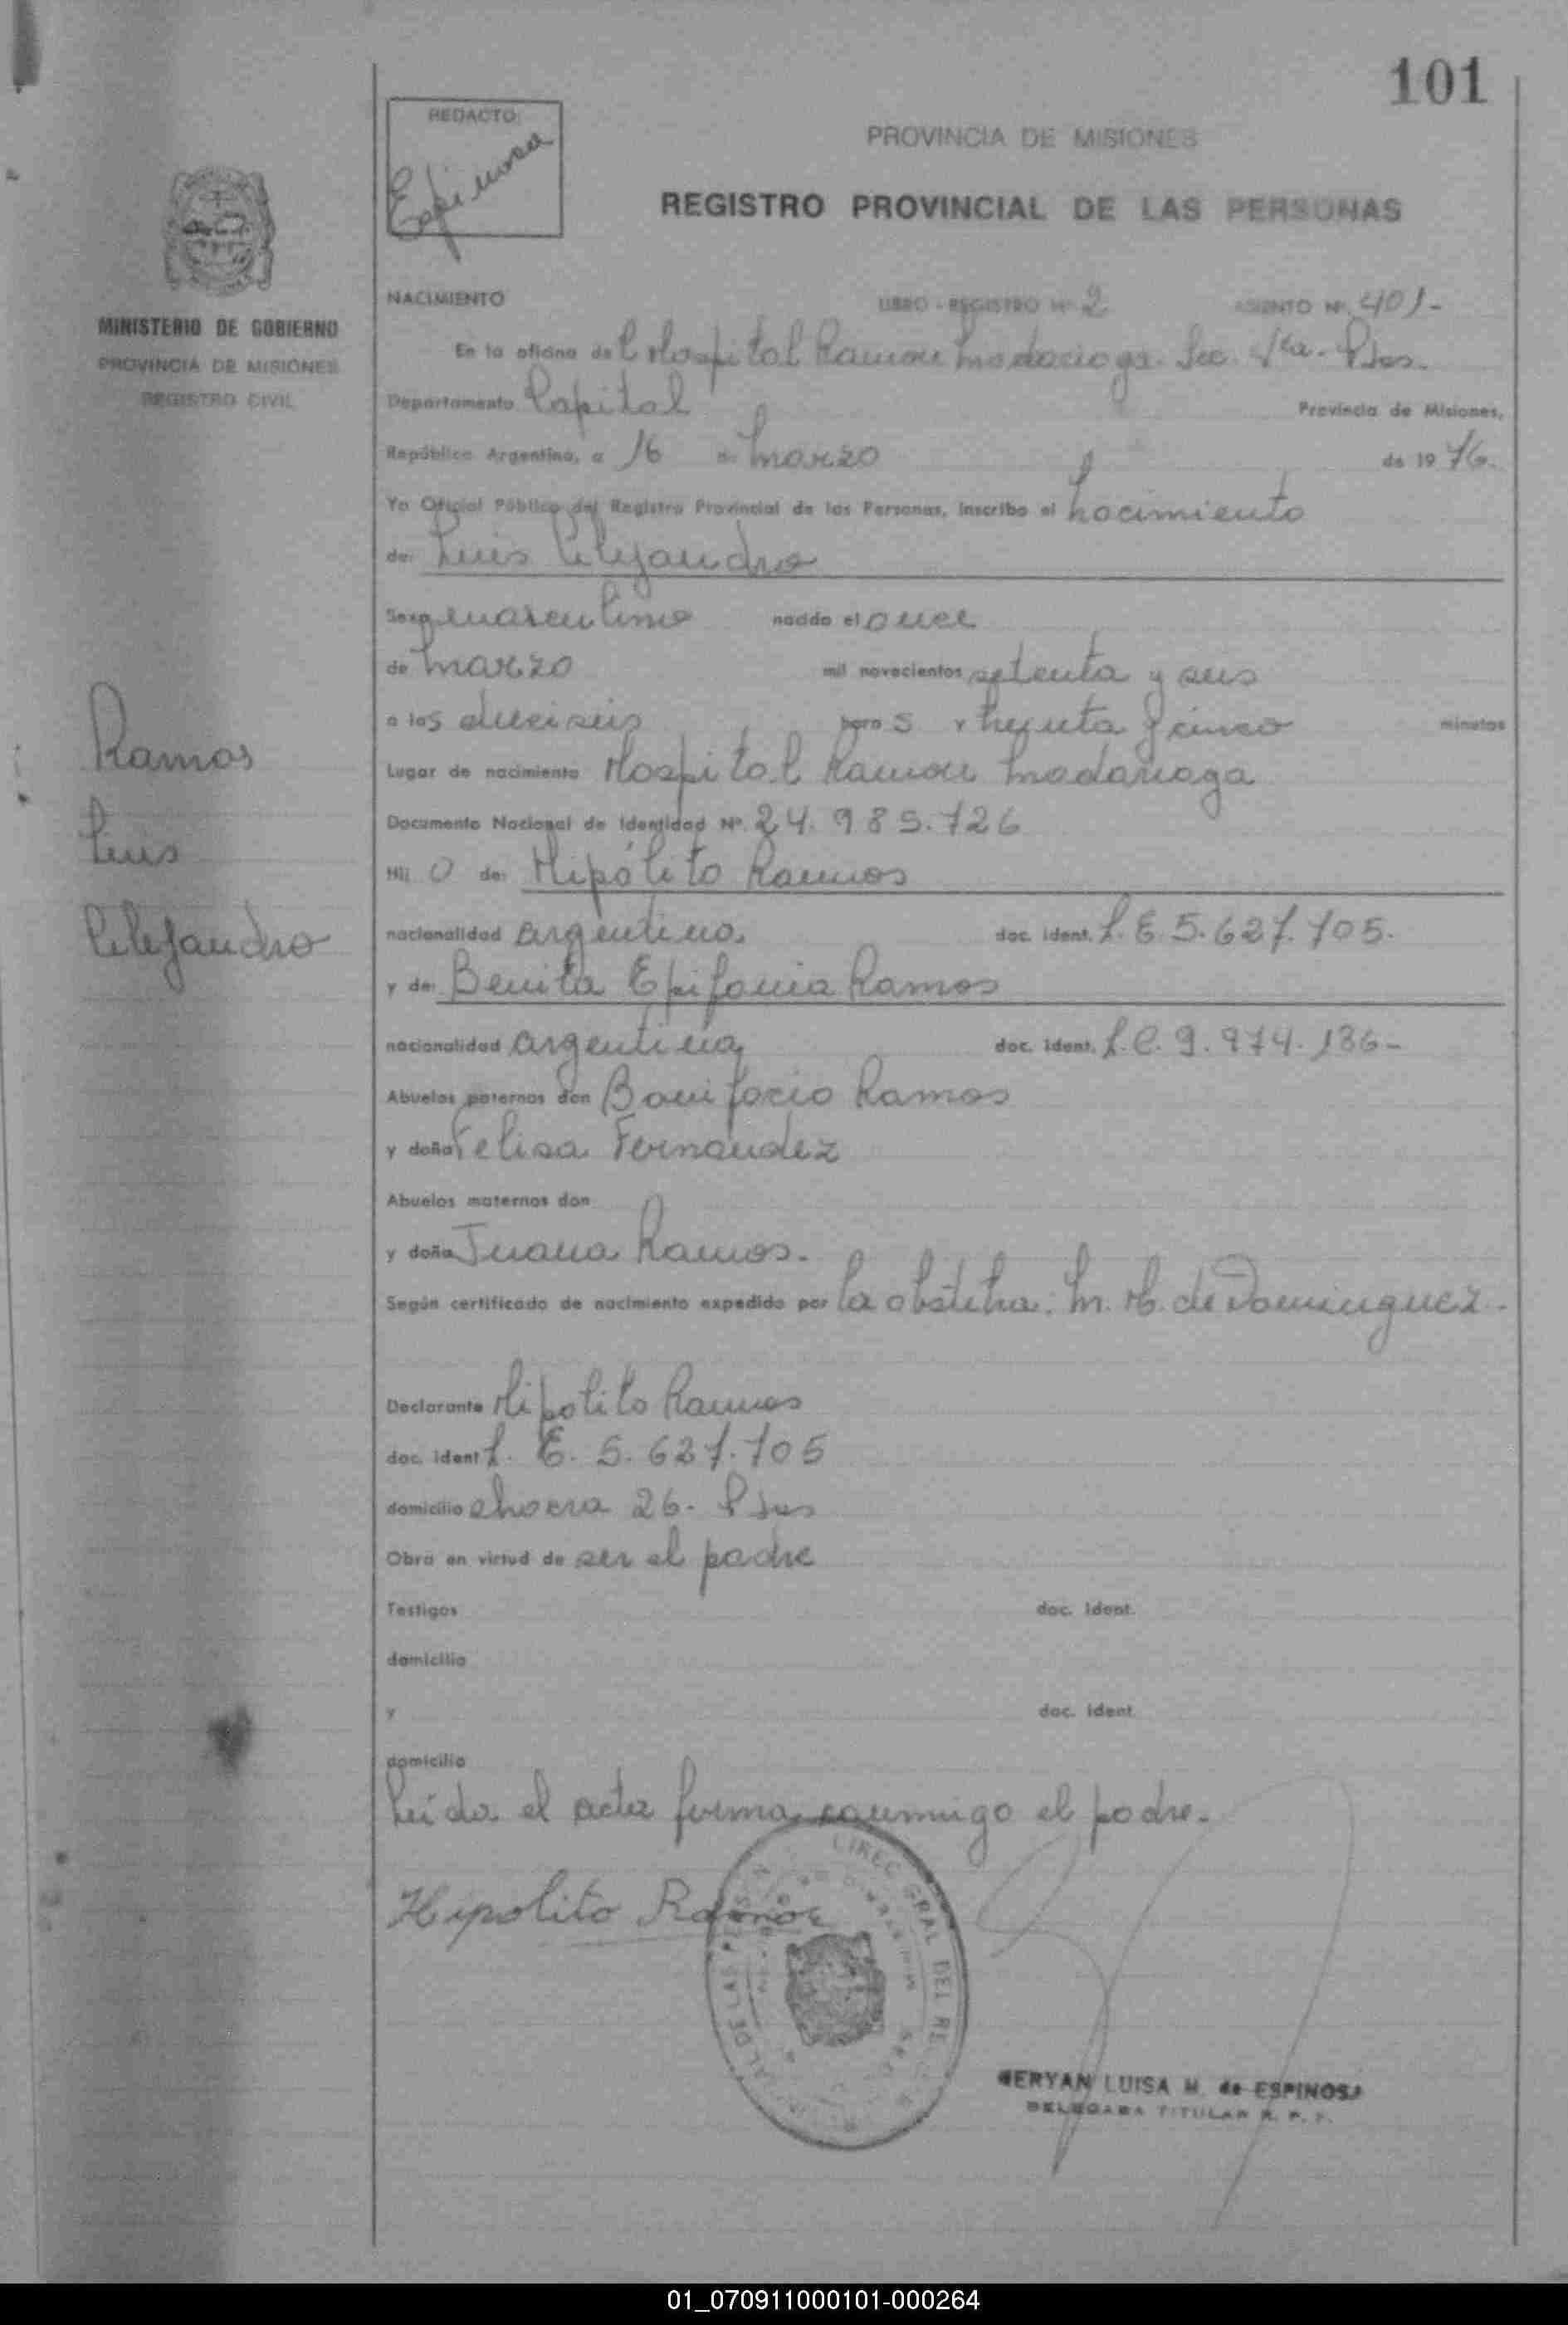 101
REDACTO:
Espinosa
PROVINCIA DE MISIONES
REGISTRO PROVINCIAL DE LAS PERSONAS
MINISTERIO DE GOBIERNO
PROVINCIA DE MISIONES
REGISTRO CIVIL
NACIMIENTO LIBRO - REGISTRO Nº 2 ASIENTO Nº 401-
En la oficina del Hospital Ramon Madariaga. Sec. 1ra. Pdas.
Departamento Capital Provincia de Misiones,
República Argentina, a 16 de Marzo de 1976.
Yo Oficial Público del Registro Provincial de las Personas, inscribo el Nacimiento
de: Luis Alejandro
Sexo masculino nacido el once
de Marzo mil novecientos setenta y seis
a las dieciseis horas y treinta y cinco minutos
Lugar de nacimiento Hospital Ramon Madariaga
Documento Nacional de Identidad Nº 24.985.726
Hijo de: Hipólito Ramos
nacionalidad argentino. doc. ident. L.E. 5.627.705.
y de: Benita Epifania Ramos
nacionalidad argentina doc. ident. L.C. 9.974.136-
Abuelos paternos don Bonifacio Ramos
y doña Felisa Fernandez
Abuelos maternos don
y doña Juana Ramos.
Según certificado de nacimiento expedido por la obstetra. M. H. de Dominguez.
Declarante Hipolito Ramos
doc. ident L. E. 5.627.705
domicilio chacra 26. Pdas
Obra en virtud de ser el padre
Testigos doc. ident.
domicilio
y doc. ident.
domicilio
Leída el acta firma conmigo el padre.
Hipolito Ramos
DIREC. GRAL. DEL RE
AL DE LAS PERSON
MERYAN LUISA M. de ESPINOSA
DELEGADA TITULAR R. P. P.
Ramos
Luis
Alejandro
01_070911000101-000264